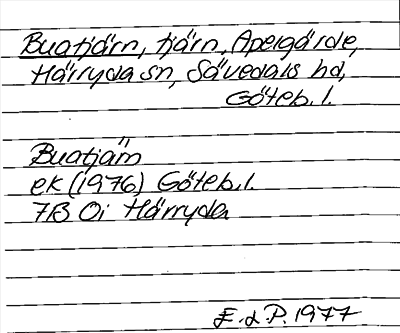 Buatjärn, tjärn, Apelgärde,
Härryda sn, Sävedals hd,
Göteb. l.
Buatjärn
ek (1976) Göteb. l.
7B 0i Härryda
E. d. P. 1977